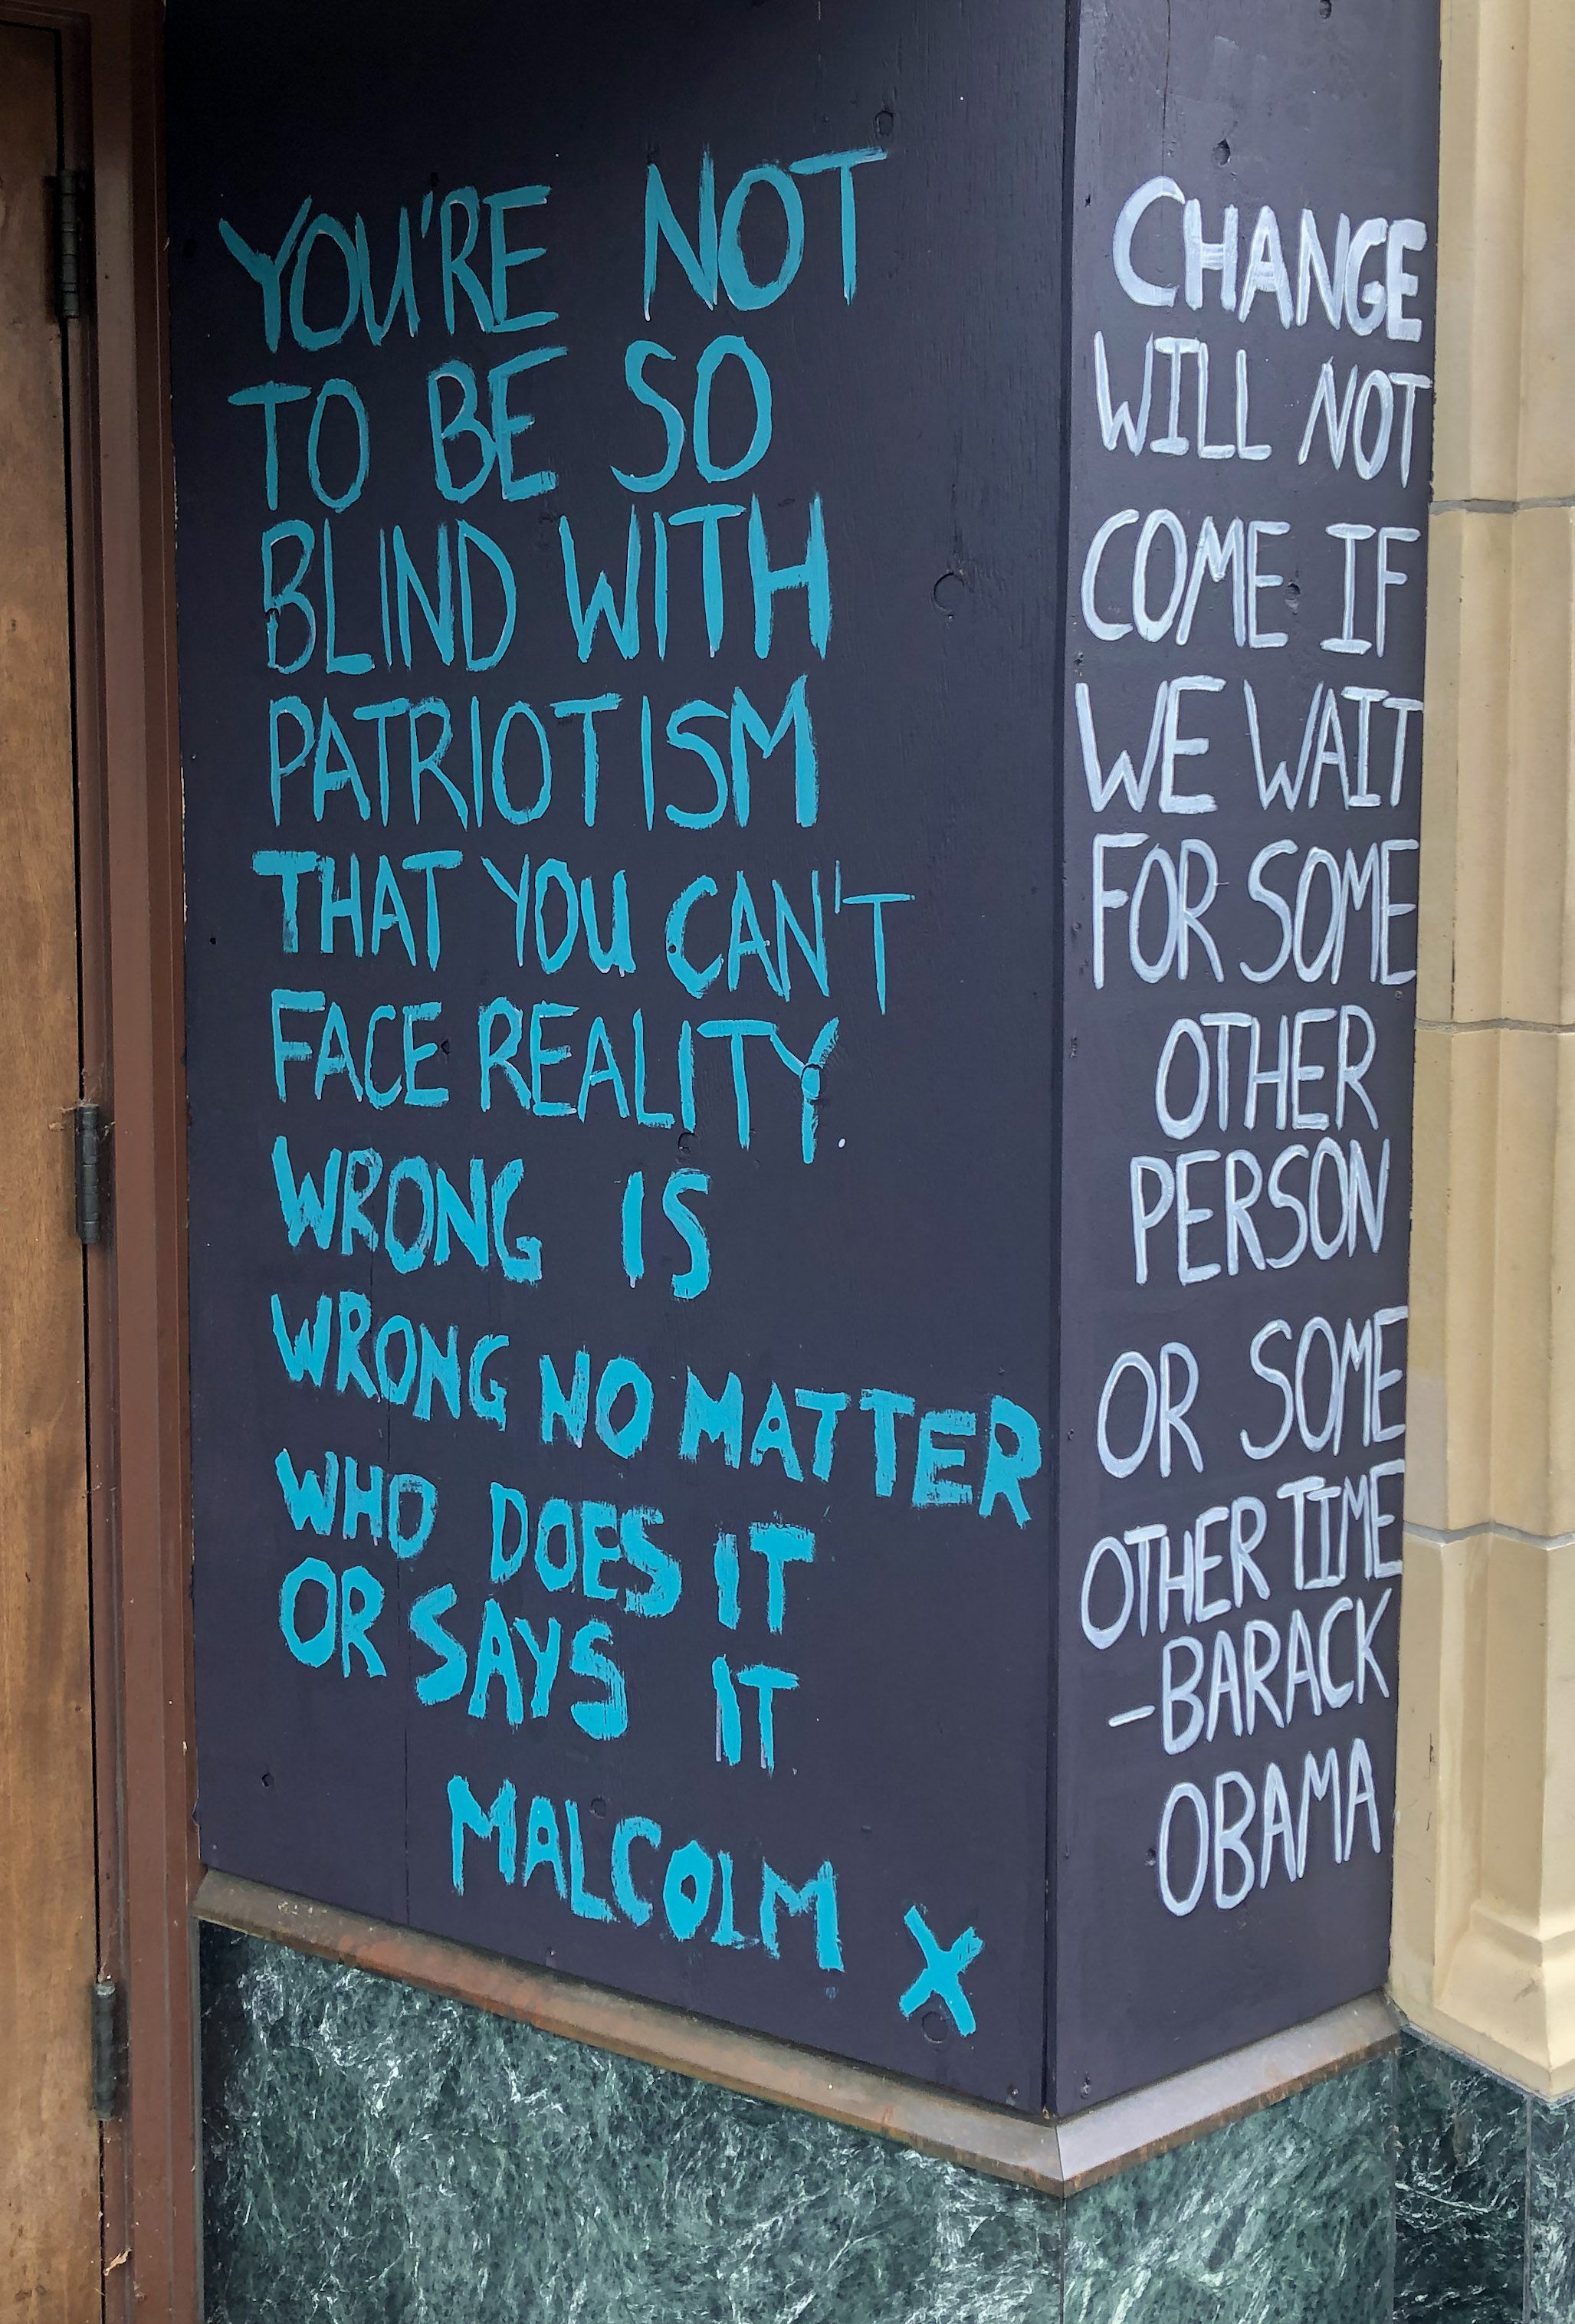 YOU'RE NOT
TO BE SO
BLIND WITH
PATRIOTISM
THAT YOU CAN'T
FACE REALITY.
WRONG IS
WRONG NO MATTER
WHO DOES IT
OR SAYS IT
MALCOLM X
CHANGE
WILL NOT
COME IF
WE WAIT
FOR SOME
OTHER
PERSON
OR SOME
OTHER TIME
-BARACK
OBAMA